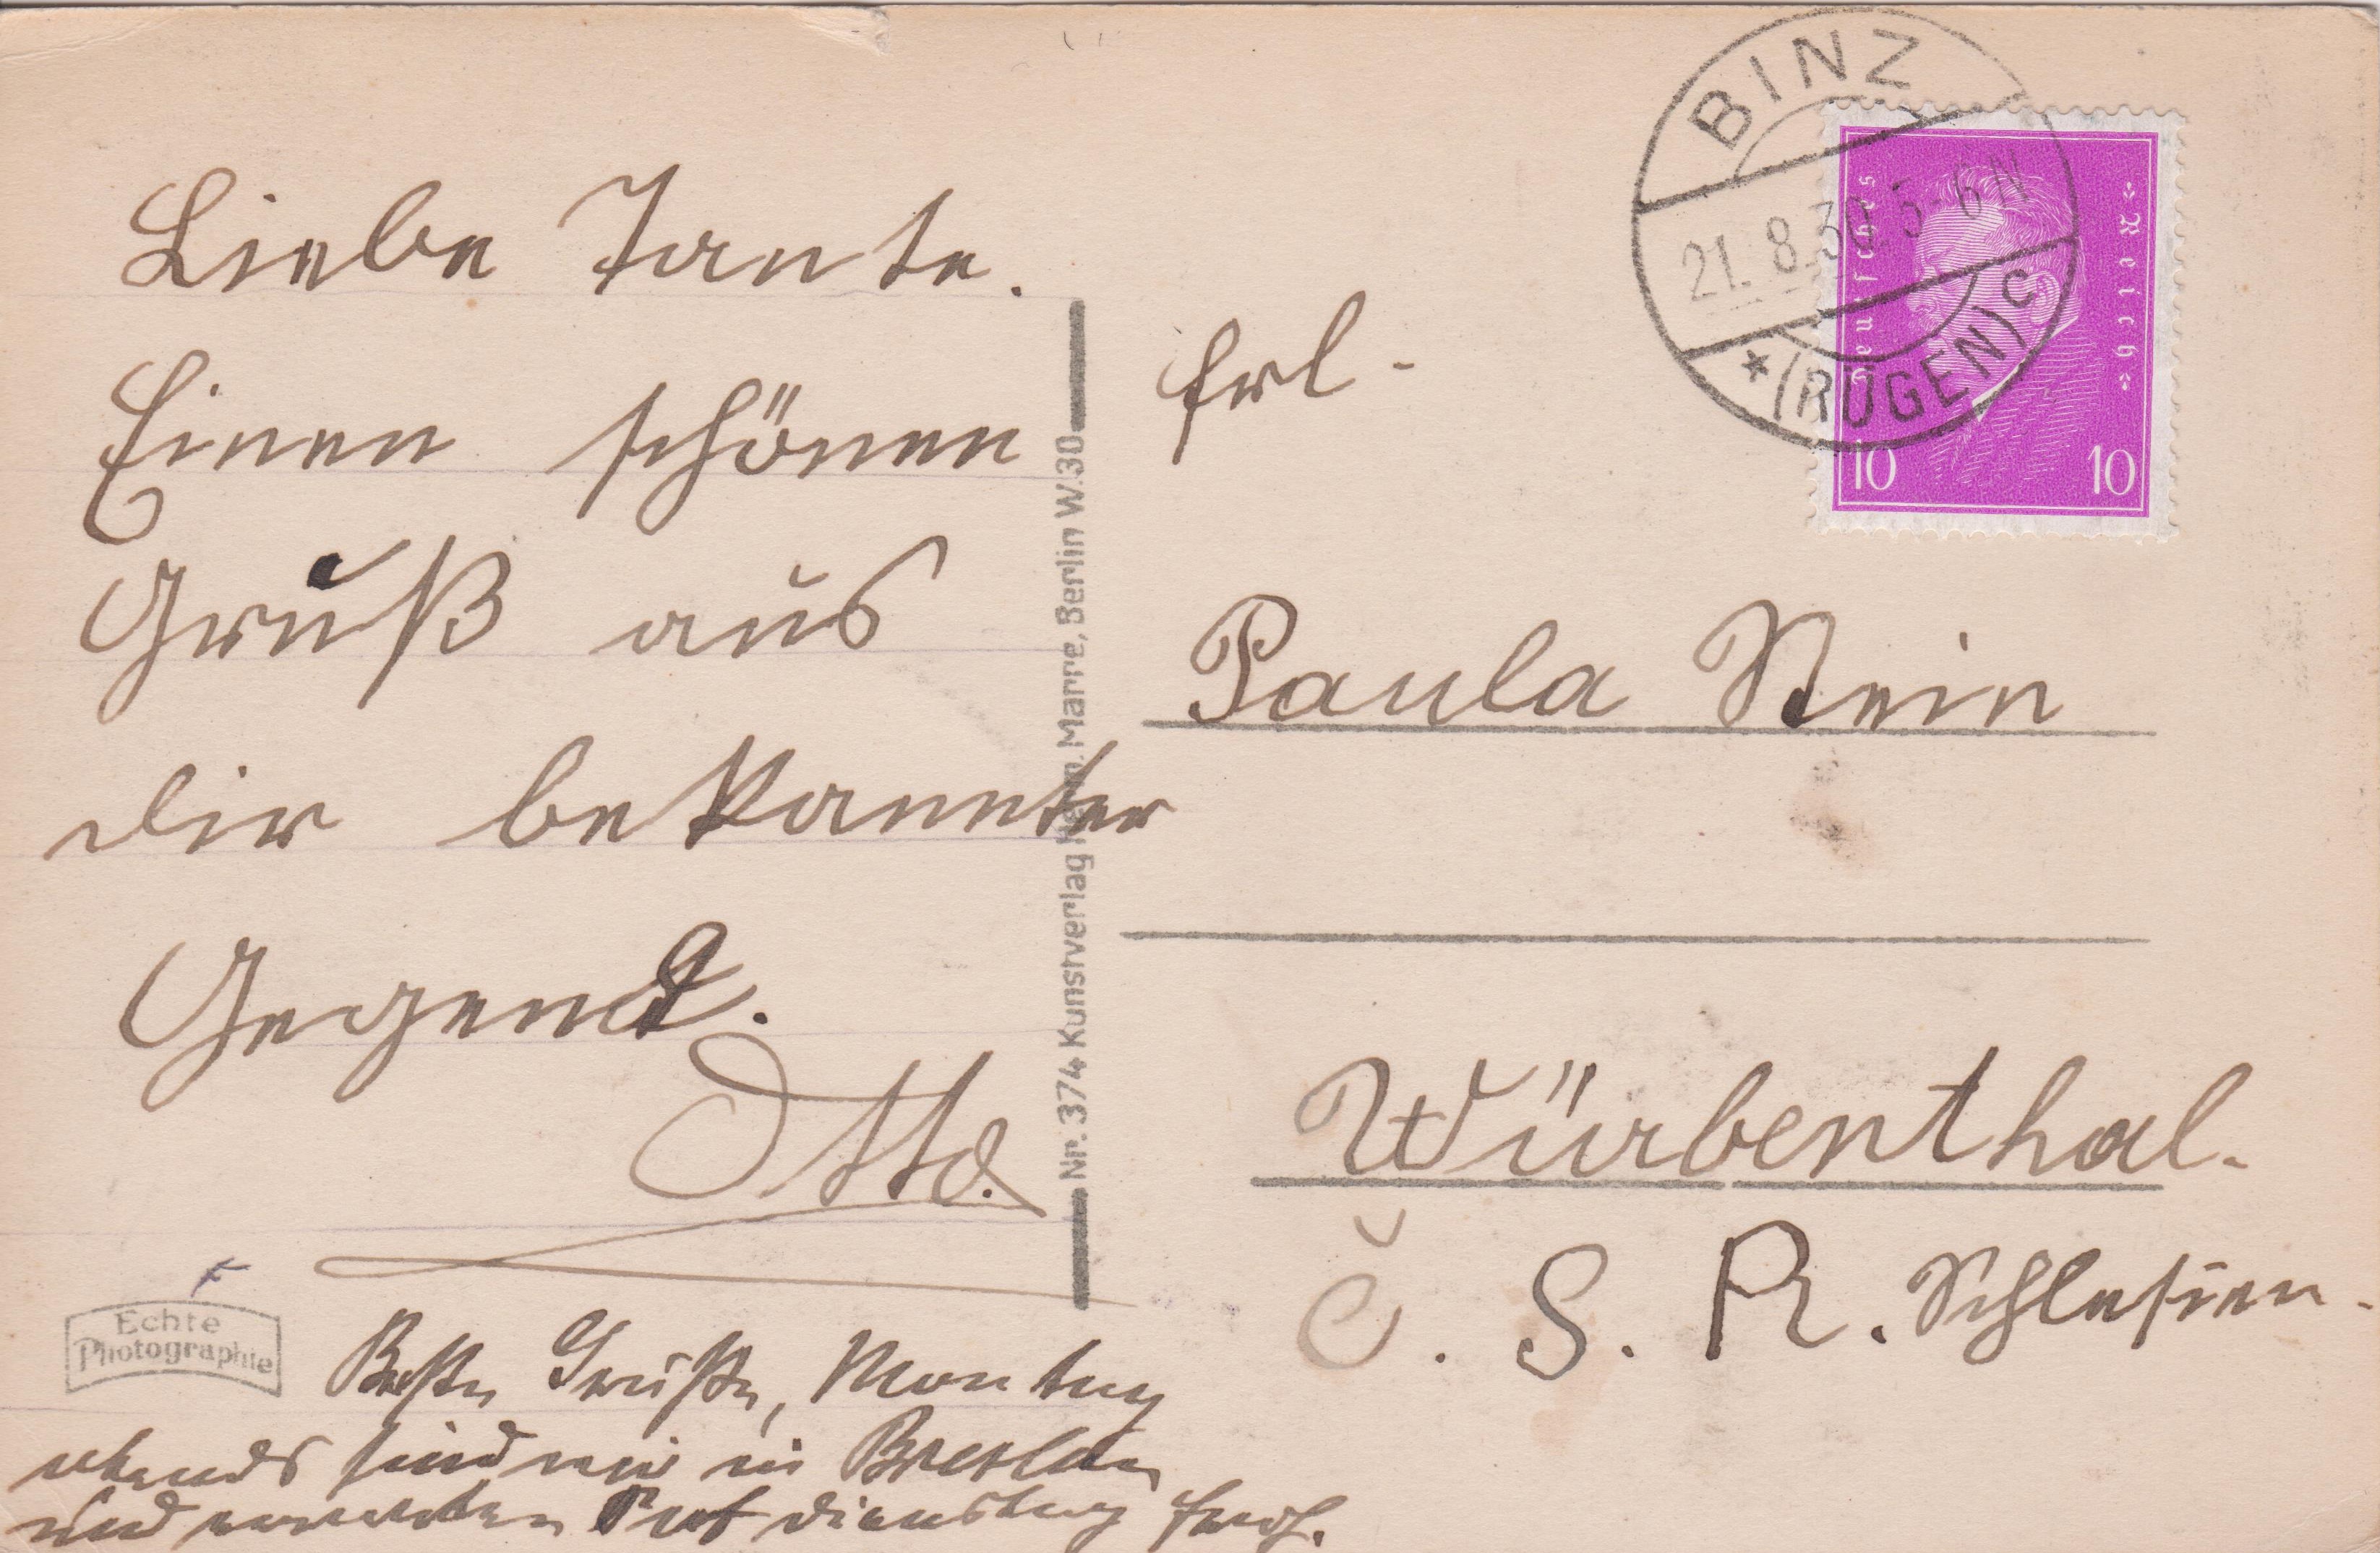 Liebe Tante.
Einen schönen
Gruß aus
dir bekannter
Gegend.
Otto.
Echte
Photographie
Beste Grüße, Montag
abends sind wir in Breslau
und erwarten dienstag früh.
Nr. 374 Kunstverlag Herm. Marre, Berlin W.30
BINZ
21.8.30.5-6N
* (RÜGEN) C
Deutsches Reich
10 10
Frl.
Paula Stein
Würbenthal.
Č. S. R. Schlesien.